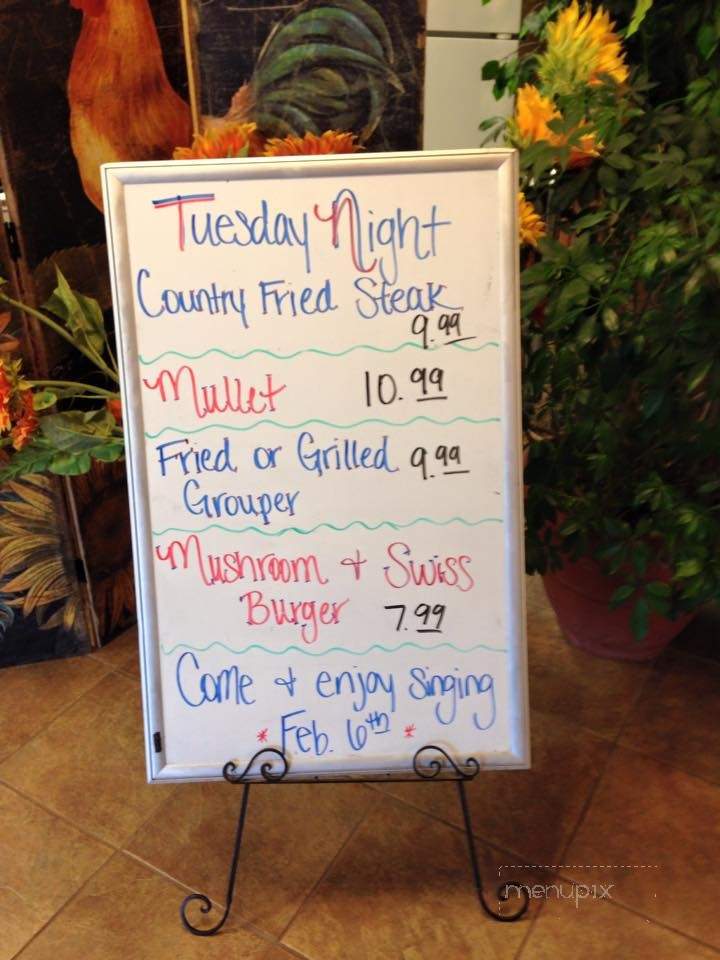 Tuesday Night
Country Fried Steak
9.99
Mullet 10.99
Fried or Grilled 9.99
Grouper
Mushroom & Swiss
Burger 7.99
Come & enjoy singing
* Feb. 6th *
menupix